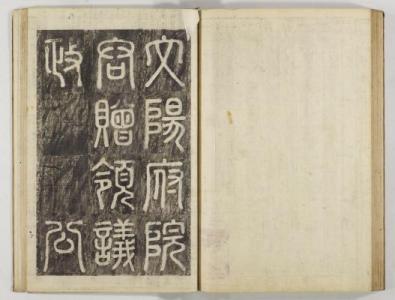 文陽府院
君贈領議
政 公